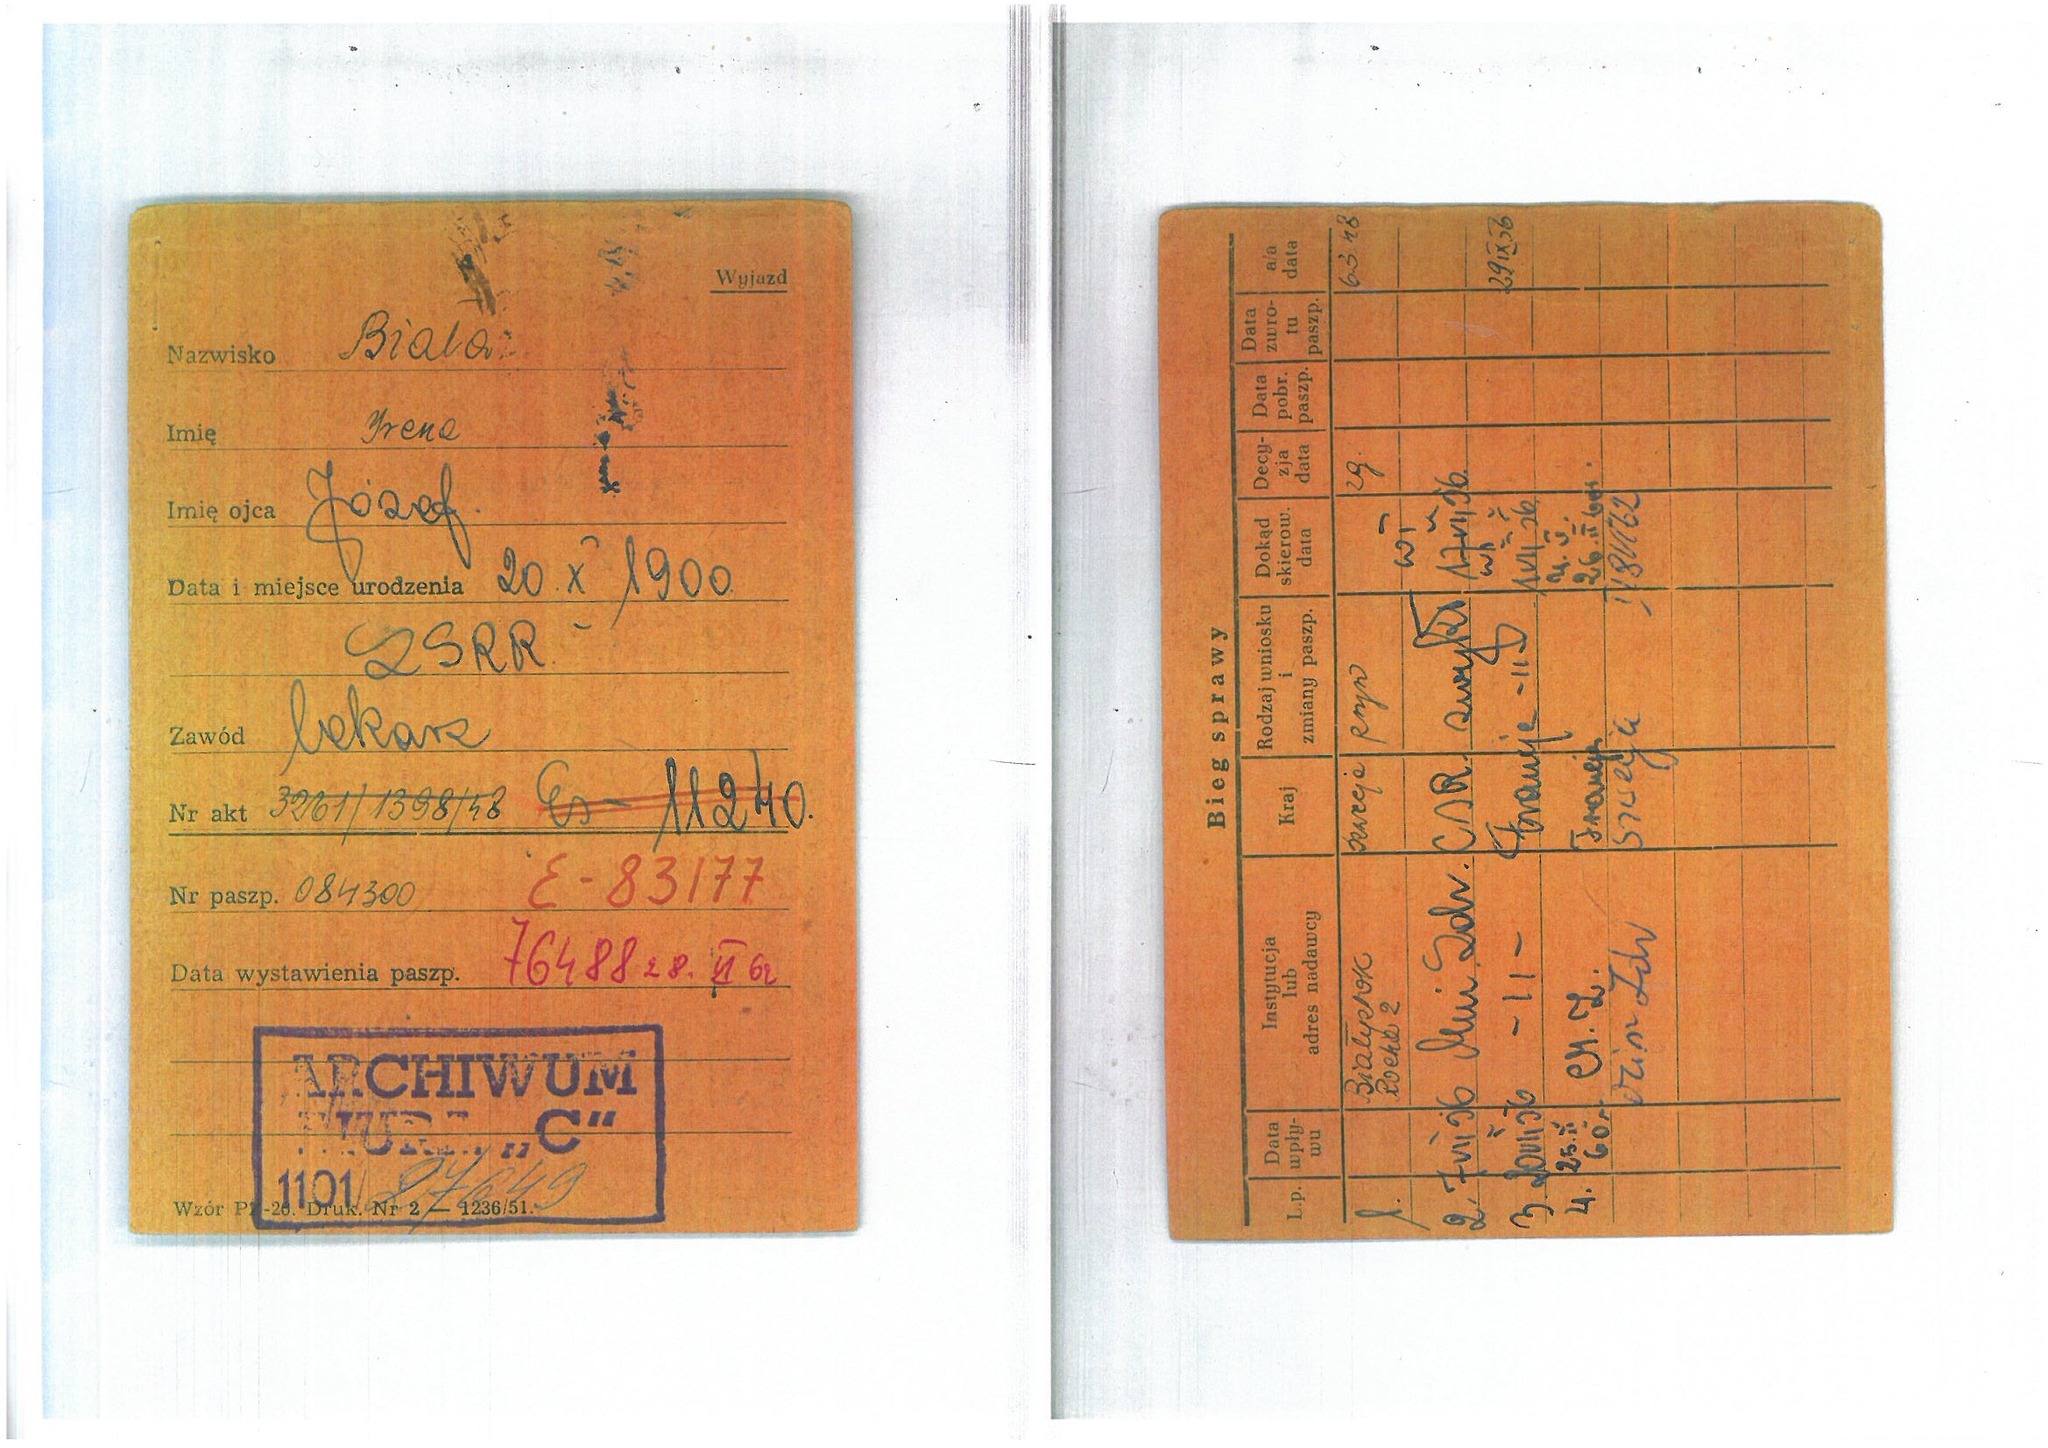 Wyjazd
Nazwisko Biała
Imię Irena
Imię ojca Józef.
Data i miejsce urodzenia 20.X 1900.
ZSRR
Zawód lekarz
Nr akt 3261/1398/48 Es - 11240.
Nr paszp. 084300 E-83177
Data wystawienia paszp. 76488 28. VI 62
ARCHIWUM
BIURA „C“
1101/87649
Wzór PZ-26. Druk. Nr 2 — 1236/51.
Bieg sprawy
L.p. Data wpły-wu Instytucja lub adres nadawcy Kraj Rodzaj wniosku i zmiany paszp. Dokąd skierow. data Decy-zja data Data pobr. paszp. Data zwro-tu paszp. a/a data
1. Białystok szwecja 29.
2. 7 VII 56 Min. Zdrv. CSR.
3. -11- Francja -11- 29 IX 56
4. 25.II 60r. M.Z. Francja 26.II 60r.
Szwecja